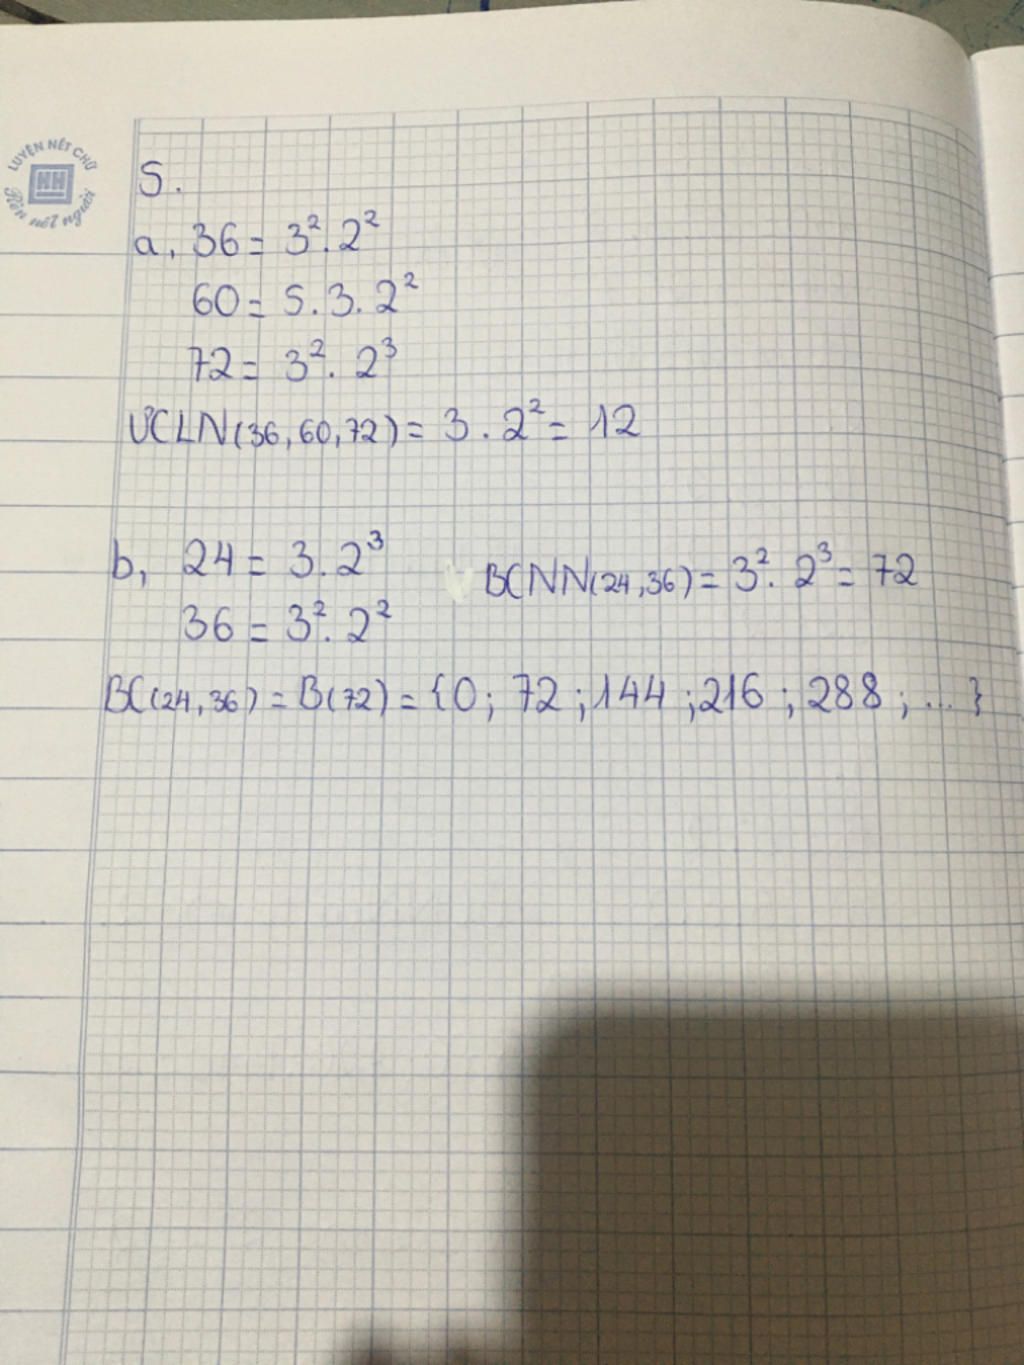 LUYỆN NẾT CHỮ
HH
Rèn nết người
5.
a, 36 = 3². 2²
60 = 5. 3. 2²
72 = 3². 2³
ƯCLN(36, 60, 72) = 3. 2² = 12
b, 24 = 3. 2³
36 = 3². 2²
BCNN(24, 36) = 3². 2³ = 72
BC(24, 36) = B(72) = {0; 72; 144; 216; 288; ...}